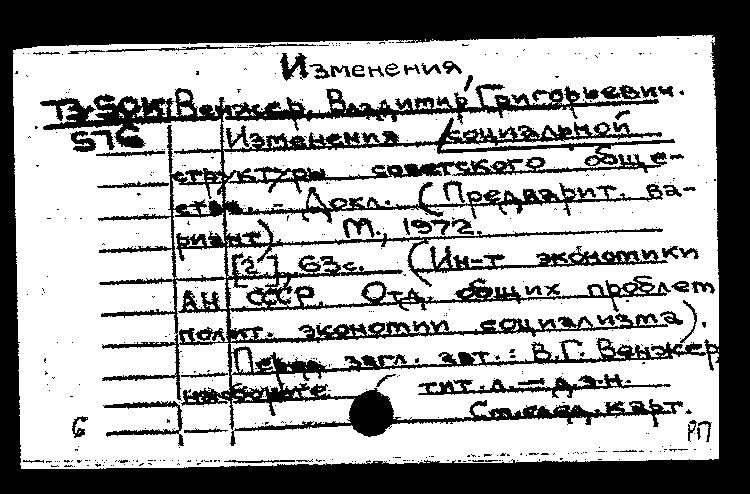 Изменения,
ТЗ-5ОК Венжер, Владимир Григорьевич.
576 Изменения социальной
структуры советского обще-
ства. - Докл. (Предварит. ва-
риант). М., 1972.
[2], 63 с. (Ин-т экономики
АН СССР. Отд. общих проблем
полит. экономии социализма).
Перед загл. авт.: В.Г. Венжер
тит. л. - д.э.н.
См. след. карт.
6
РП